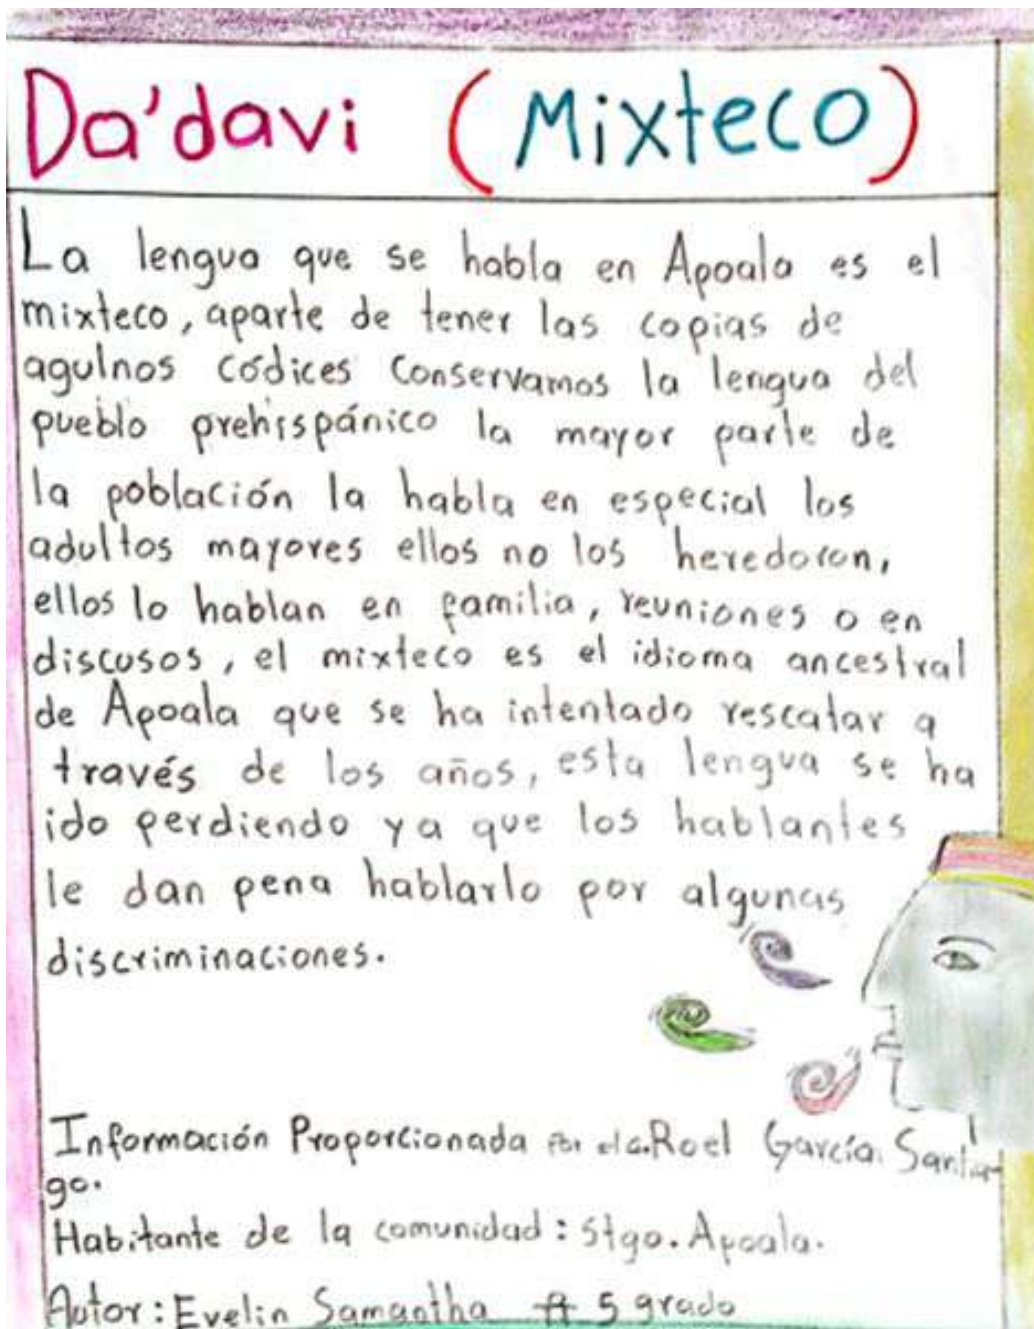 Da'davi (Mixteco)
La lengua que se habla en Apoala es el
mixteco, aparte de tener las copias de
agulnos códices conservamos la lengua del
pueblo prehispánico la mayor parte de
la población la habla en especial los
adultos mayores ellos no los heredaron,
ellos lo hablan en familia, reuniones o en
discusos, el mixteco es el idioma ancestral
de Apoala que se ha intentado rescatar a
través de los años, esta lengua se ha
ido perdiendo ya que los hablantes
le dan pena hablarlo por algunas
discriminaciones.
Información Proporcionada Por el c. Roel García Santia
go.
Habitante de la comunidad: Stgo. Apoala.
Autor: Evelin Samantha 5 grado